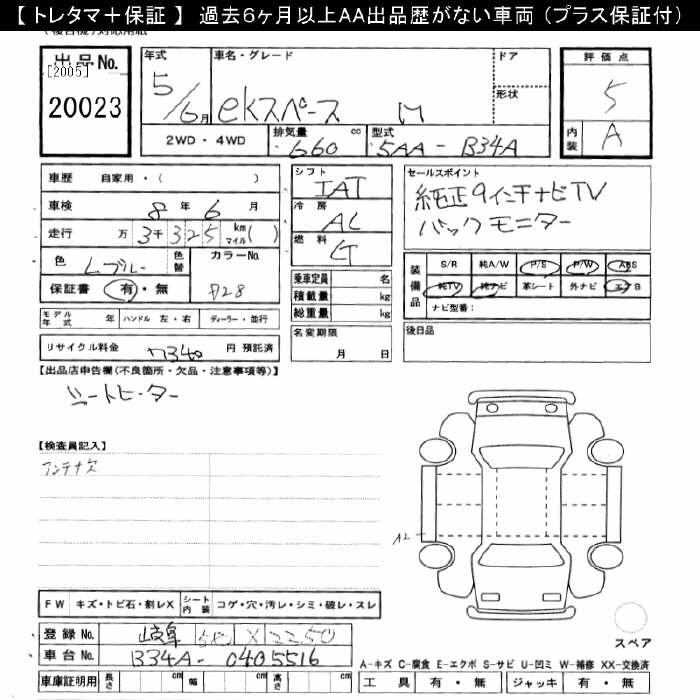 【 トレタマ＋保証 】 過去6ヶ月以上AA出品歴がない車両 (プラス保証付)
出品No. 年式 車名・グレード ドア 評価点
[2005] 5/6月 ekスペース M 形状 5
20023
2WD・4WD 排気量 660 cc 型式 5AA-B34A 内装 A
車歴 自家用・( ) シフト IAT セールスポイント
車検 8年 6月 冷房 AC 純正9インチナビTV
走行 万 3千 325 km マイル( ) 燃料 バックモニター
色 Lブルー 色替 カラーNo. 乗車定員 名 装備品 S/R 純A/W P/S P/W ABS
保証書 有・無 積載量 kg 純TV 純ナビ 革シート 外ナビ エアB
総重量 kg ナビ型番:
モデル年式 年 ハンドル 左・右 ディーラー・並行 名変期限 月 日 後日品
リサイクル料金 円 預託済
【出品店申告欄(不良箇所・欠品・注意事項等)】
シートヒーター
【検査員記入】
アンテナ欠
A2
FW キズ・トビ石・割レX シート内装 コゲ・穴・汚レ・シミ・破レ・スレ
登録No. 岐阜 580 X 2250 スペア
車台No. B34A-0405516 A-キズ C-腐食 E-エクボ S-サビ U-凹ミ W-補修 XX-交換済
車庫証明用 長さ cm 幅 cm 高さ cm 工具 有・無 ジャッキ 有・無